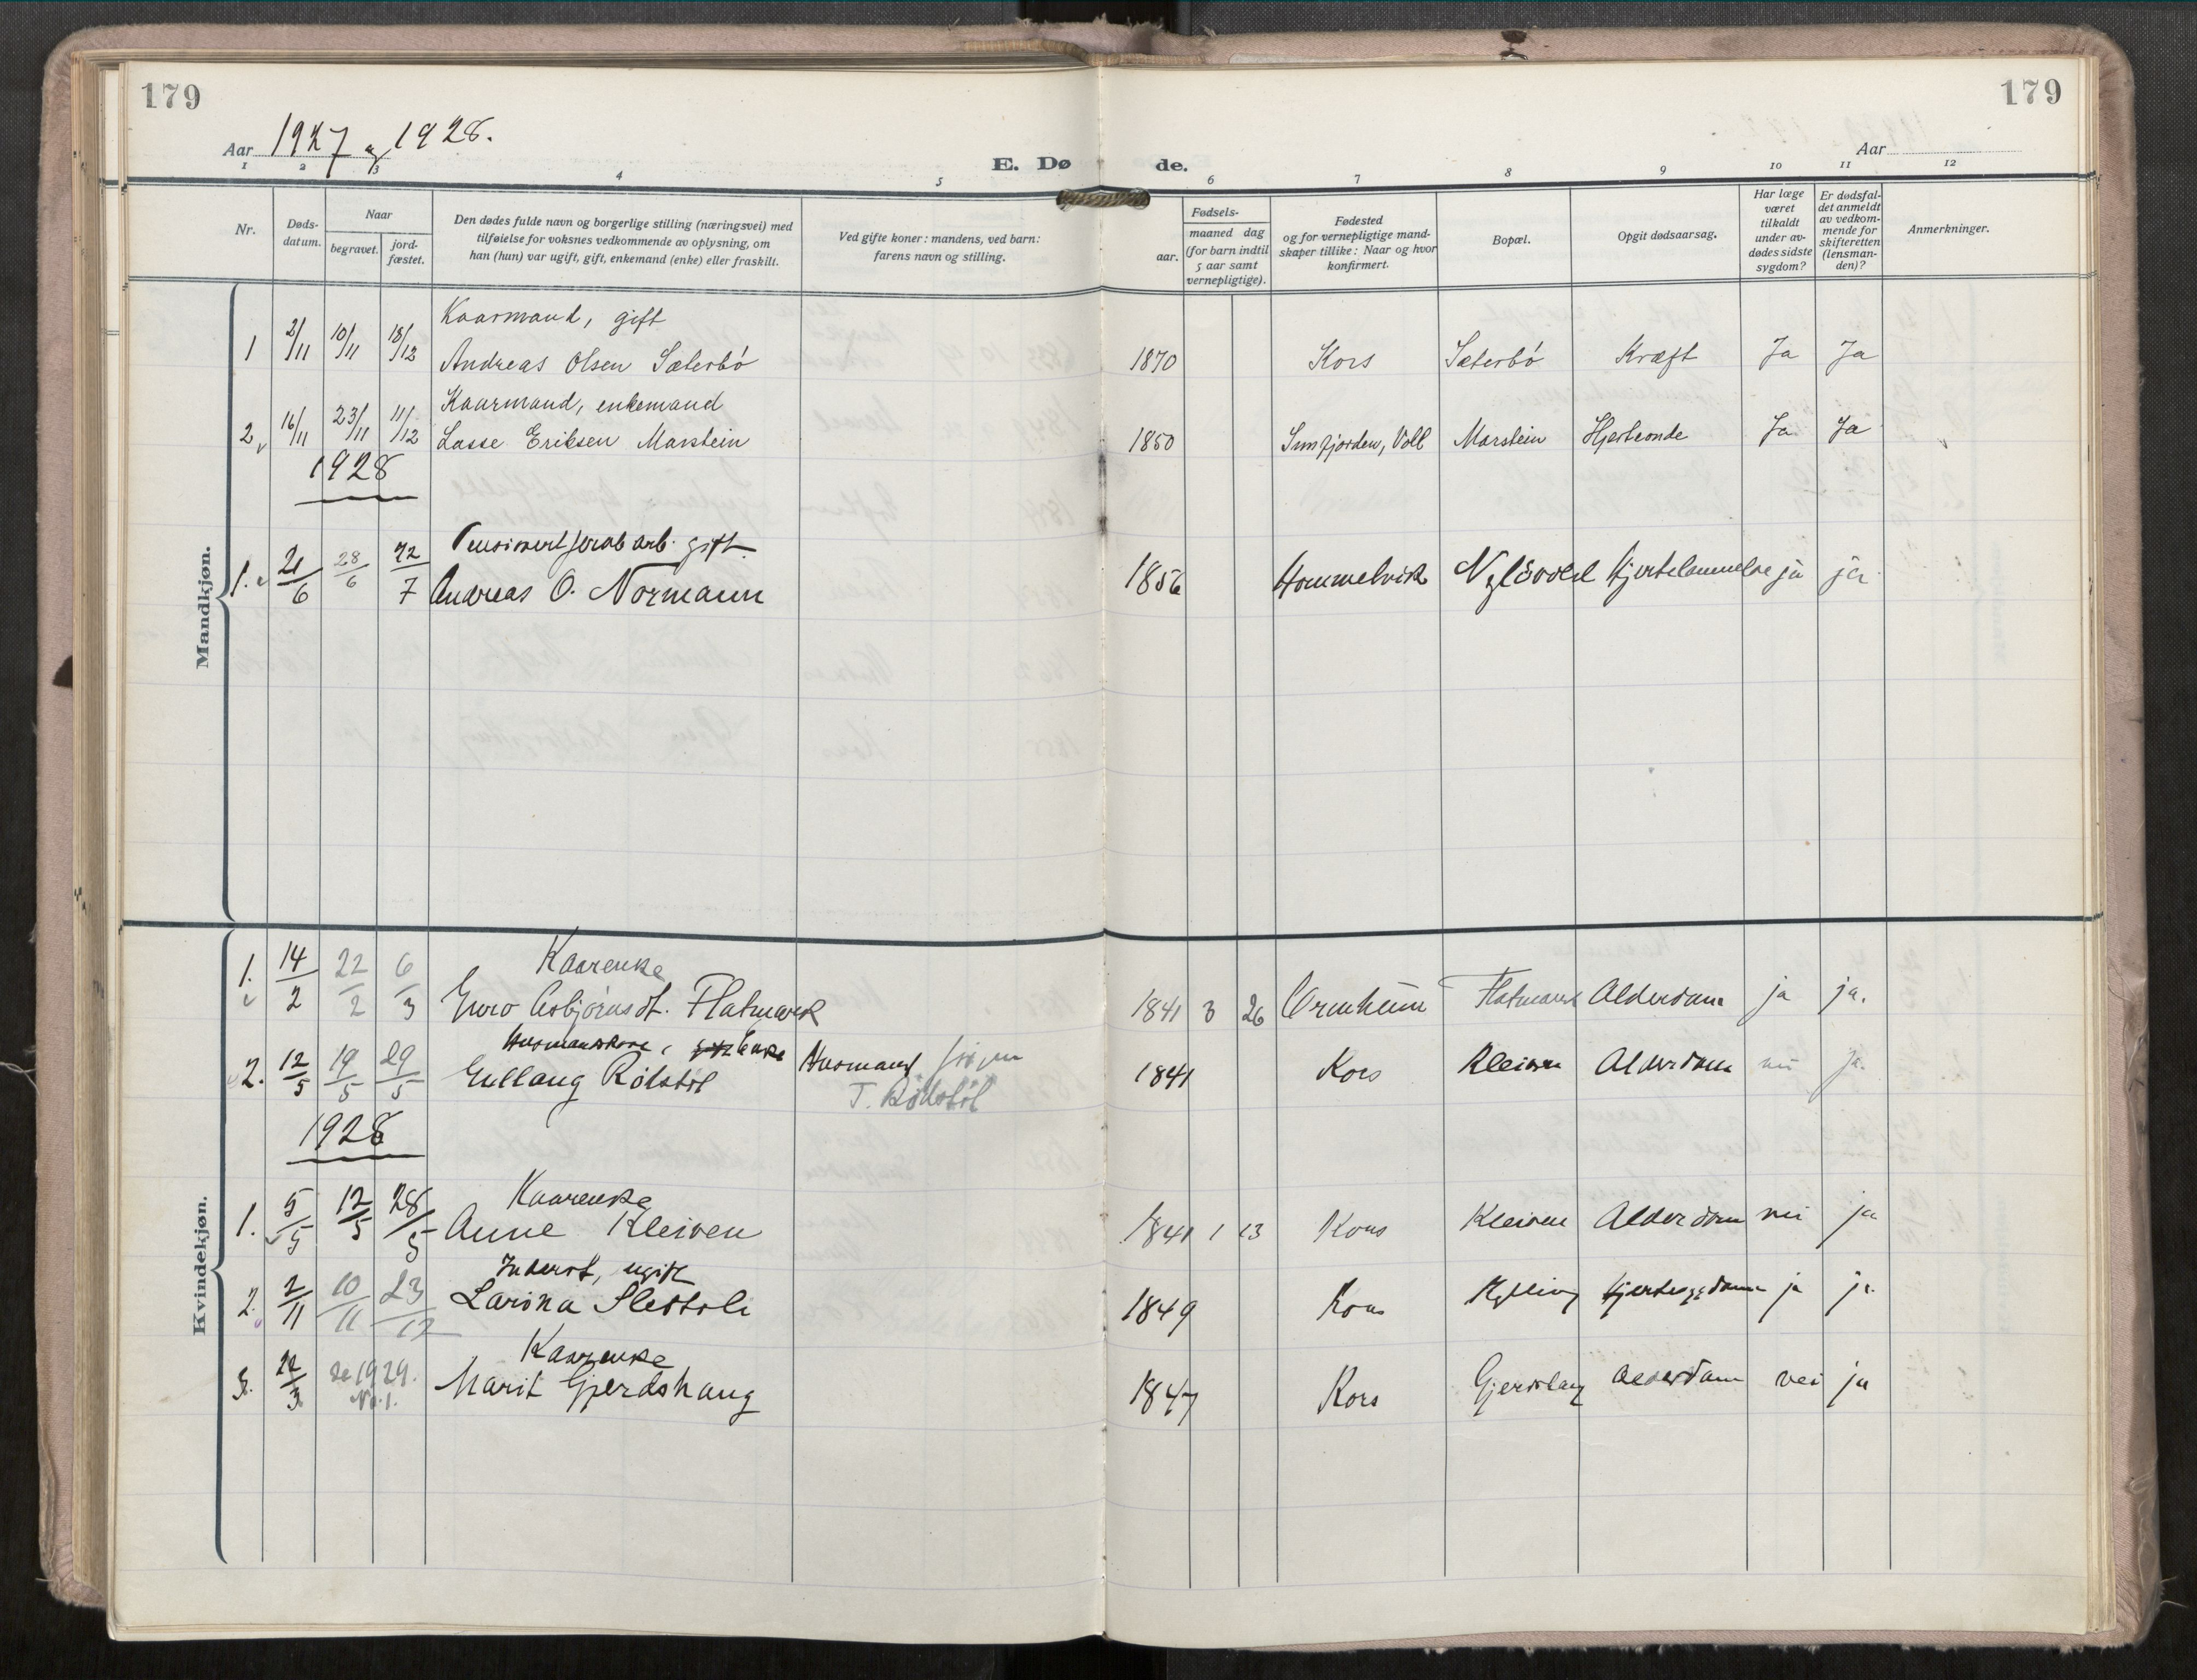 179
179
Aar 1927 og 1928.
Aar
E. Døde.
1 2 3 4 5 6 7 8 9 10 11 12
Nr.
Døds-
datum.
Naar
begravet.
jord-
fæstet.
Den dødes fulde navn og borgerlige stilling (næringsvei) med
tilføielse for voksnes vedkommende av oplysning, om
han (hun) var ugift, gift, enkemand (enke) eller fraskilt.
Ved gifte koner: mandens, ved barn:
farens navn og stilling.
Fødsels-
aar.
maaned dag
(for barn indtil
5 aar samt
vernepligtige).
Fødested
og for vernepligtige mand-
skaper tillike: Naar og hvor
konfirmert.
Bopæl.
Opgit dødsaarsag.
Har læge
været
tilkaldt
under av-
dødes sidste
sygdom?
Er dødsfal-
det anmeldt
av vedkom-
mende for
skifteretten
(lensman-
den)?
Anmerkninger.
Mandkjøn.
Kaarmand, gift
1 2/11 10/11 18/12 Andreas Olsen Sæterbó 1870 Kors Sæterbó Kræft Ja Ja
Kaarmand, enkemand
2 16/11 23/11 11/12 Lasse Eriksen Marstein 1850 Voll Marstein Hjerteonde Ja Ja
1928
gift.
1. 21/6 28/6 22/7 Andreas O. Normann 1856 Hommelvik Hjertelammelse ja ja
Kvindekjøn.
Kaarenke
1. 14/2 22/2 6/3 Guro Asbjørnsdt. Flatmark 1841 3 26 Ormheim Flatmark Alderdom ja ja.
Husmandskone, Enke Husmand
2. 12/5 19/5 29/5 Gullaug Rötstöl 1841 Kors Kleiven Alderdom nei ja.
T. Rödstöl
1928
Kaarenke
1. 5/5 12/5 28/5 Anne Kleiven 1841 1 13 Kors Kleiven Alderdom nei ja
Inderst, ugift
2. 2/11 10/11 23/12 Larina Slettoli 1849 Kors Kylling ja ja
Kaarenke
3. 22/3 Se 1929. No. 1. Marit Gjerdshaug 1847 Kors Gjerdshaug Alderdom nei ja